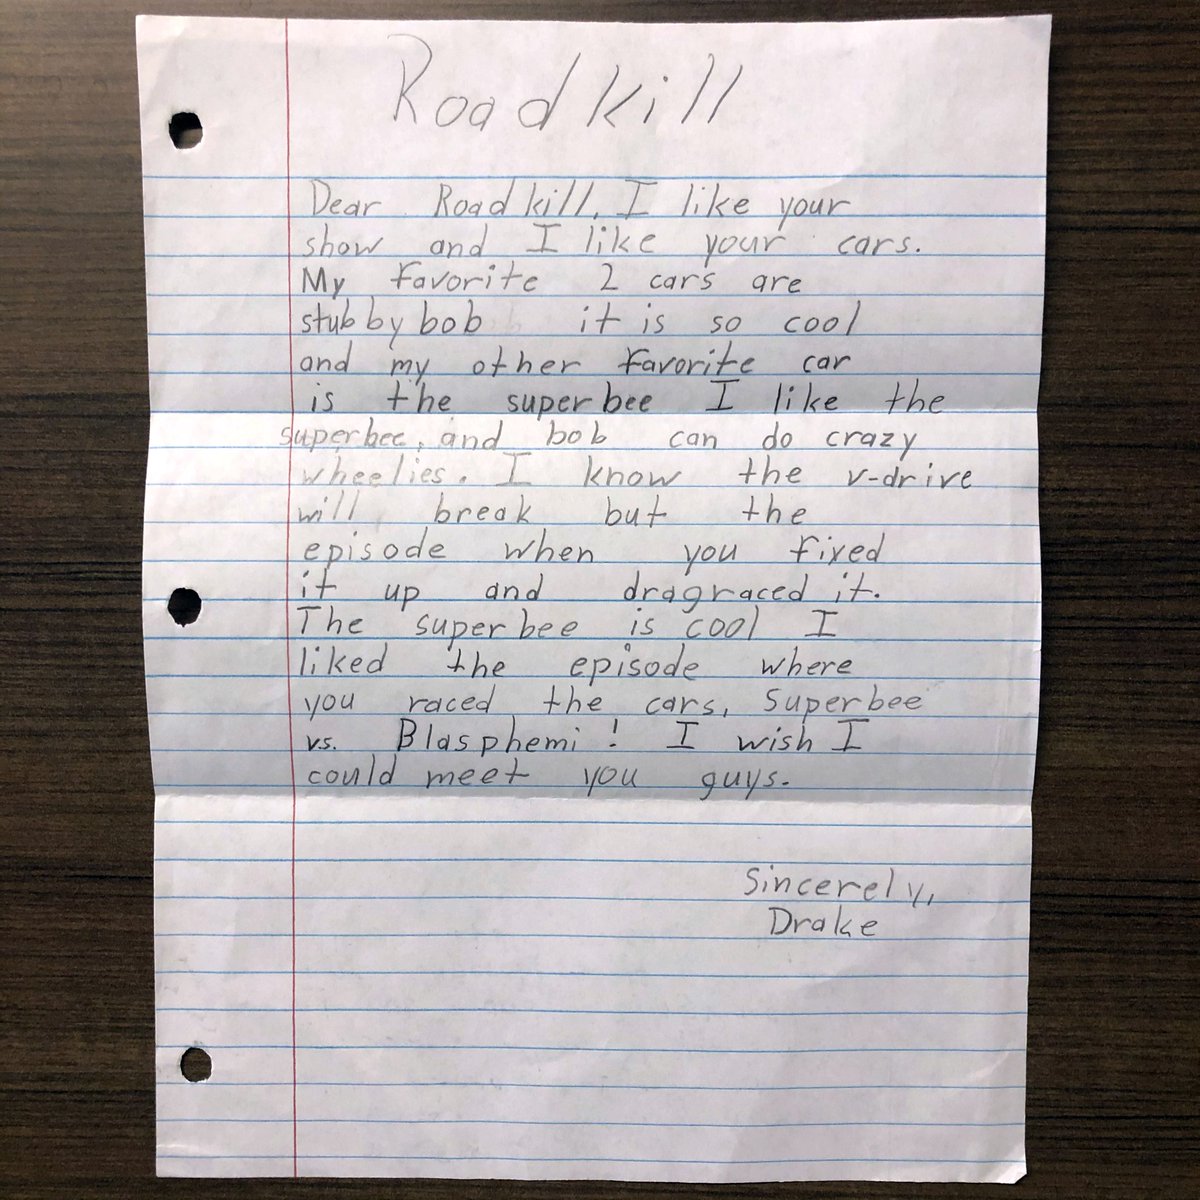 Roadkill
Dear Roadkill, I like your
show and I like your cars.
My favorite 2 cars are
stubby bob it is so cool
and my other favorite car
is the superbee I like the
superbee, and bob can do crazy
wheelies. I know the v-drive
will break but the
episode when you fixed
it up and dragraced it.
The superbee is cool I
liked the episode where
you raced the cars, Superbee
vs. Blasphemi! I wish I
could meet you guys.
Sincerely,
Drake